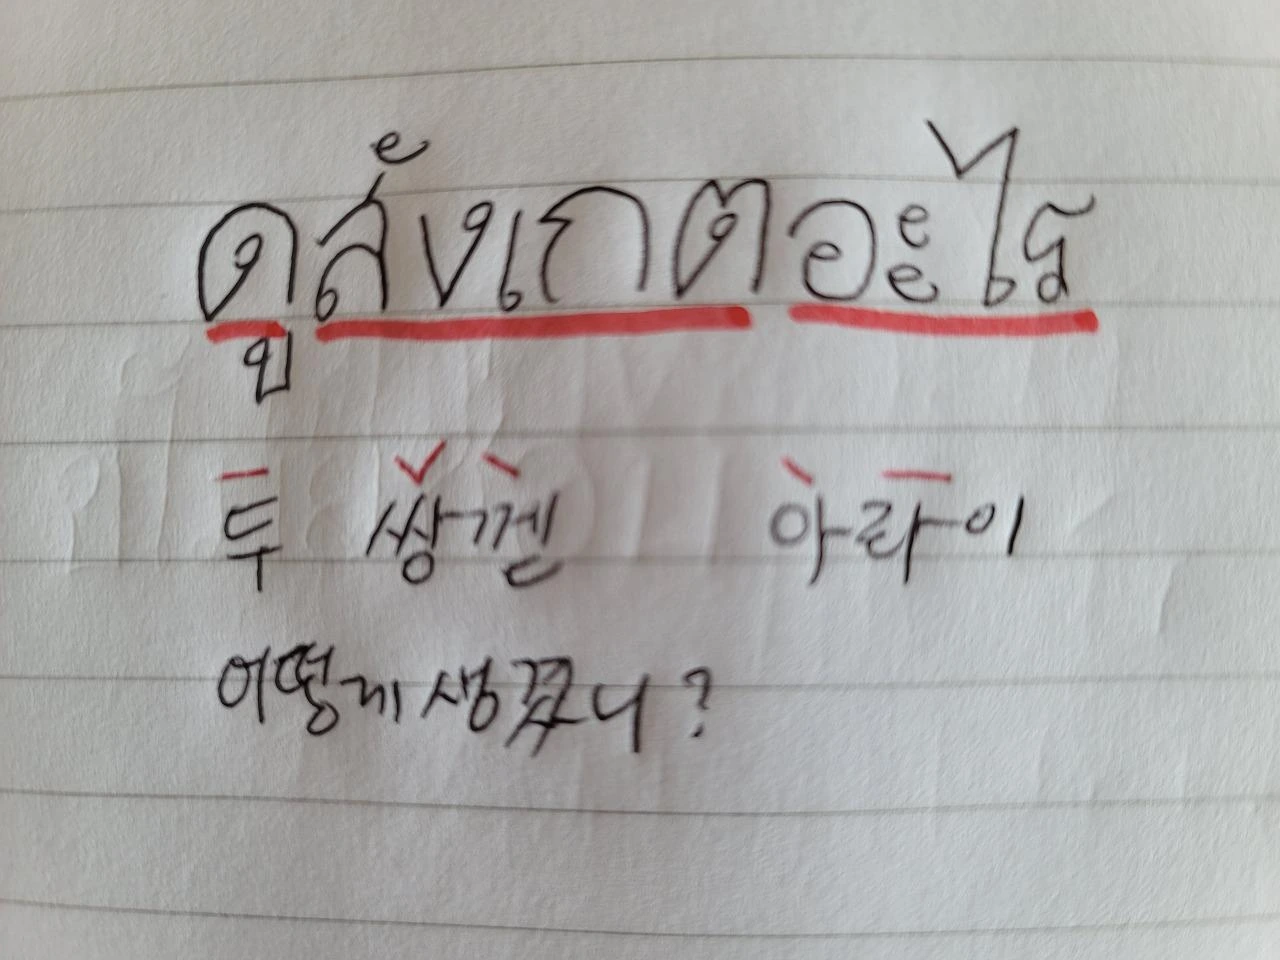 ดูสังเกตอะไร
두 쌍껟 아라이
어떻게 생겼니?